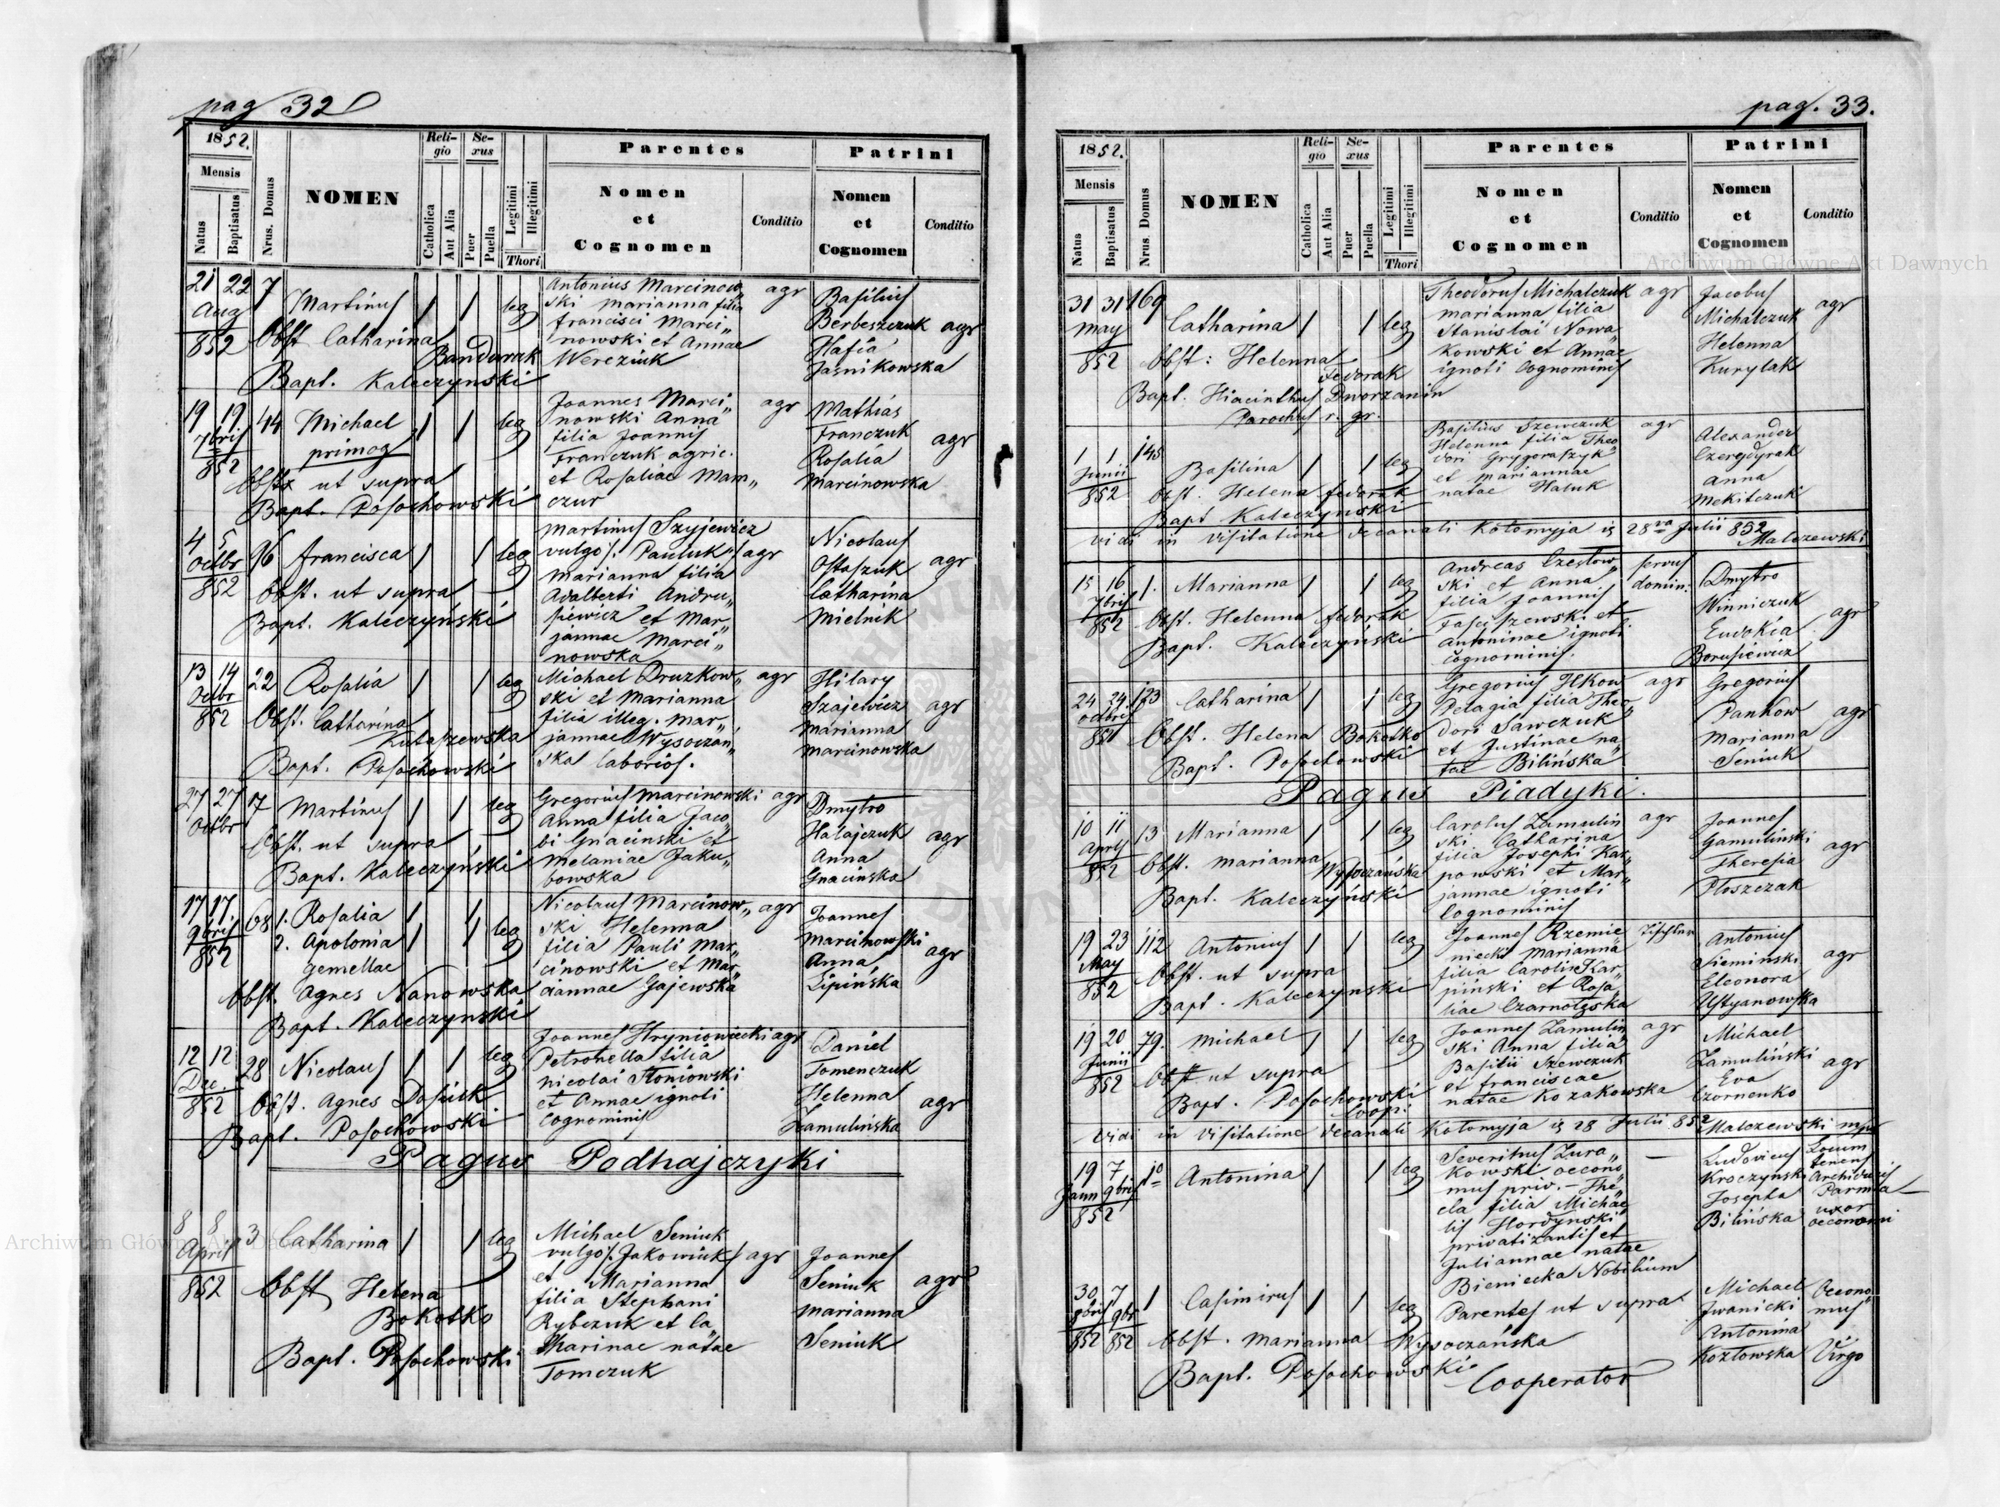 pag 32
1852.
Mensis
Natus
Baptisatus
Nrus. Domus
NOMEN
Religio
Catholica
Aut Alia
Sexus
Puer
Puella
Legitimi
Illegitimi
Thori
Parentes
Nomen
et
Cognomen
Conditio
Patrini
Nomen
et
Cognomen
Conditio
21 22 7 Martinus 1 1 leg
Aug
852
Obst Catharina
Bandurak
Bapt. Kaleczynski
Antonius Marcinow„ agr
ski Marianna filia
francisci Marci„
nowski et Annae
Wereziuk
Basilius
Berbeszczuk agr
Hafia
Jasnikowska
19 19 44 Michael 1 1 leg
7bris primog
852
Obstx ut supra
Bapt. Posochowski
Joannes Marci„ agr
nowski Anna
filia Joannis
Franczuk agric.
et Rosaliae Mam„
czur
Mathias
Franczuk agr
Rosalia
Marcinowska
4 5 96 francisca 1 1 leg
Octbr
852
Obst. ut supra
Bapt. Kaleczyński
Martinus Szyjewicz
vulgo/. Pauluk/ agr
Marianna filia
Adalberti Andru„
siewicz et Mar„
jannae Marci„
nowska
Nicolaus
Ostaszuk agr
Catharina
Mielnik
13 14 22 Rosalia 1 1 leg
Octbr
852
Obst. Catharina
Kutaszewska
Bapt. Posochowski
Michael Druzkow„ agr
ski et Marianna
filia illeg. Mar„
jannae Wysoczań„
ska laborios.
Hilary
Szajewicz agr
Marianna
Marcinowska
27 27 17 Martinus 1 1 leg
Octbr
Obst. ut supra
Bapt. Kaleczyński
Gregorius Marcinowski agr
Anna filia Jaco„
bi Gnacinski et
Melaniae Jaku„
bowska
Dmytro
Hatajczuk agr
Anna
Gnacinska
17 17. 68 1. Rosalia 1 1
9bris 2. Apolonia 1 1 leg
852 gemellae
Obst. Agnes Nanowska
Bapt. Kaleczynski
Nicolaus Marcinow„ agr
ski Helenna
filia Pauli Mar„
cinowski et Mar„
iannae Gajewska
Joannes
Marcinowski
Anna agr
Lipińska
12 12 28 Nicolaus 1 1 leg
Dec.
852
Obst. Agnes Dosiuk
Bapt. Posochowski
Joannes Hryniowiecki agr
Petronella filia
Nicolai Stoniowski
et Annae ignoti
Cognominis
Daniel
Tomenczuk
Helenna agr
Zamulińska
Pagus Podhajczyki
8 8 3 Catharina 1 1 leg
Aprils
852
Obst Helena
Bokotko
Bapt. Posochowski
Michael Seniuk
vulgo/. Jakowiuk/ agr
et Marianna
filia Stephani
Rybczuk et Ca„
tharinae natae
Tomczuk
Joannes
Seniuk agr
Marianna
Seniuk
pag. 33.
1852.
Mensis
Natus
Baptisatus
Nrus. Domus
NOMEN
Religio
Catholica
Aut Alia
Sexus
Puer
Puella
Legitimi
Illegitimi
Thori
Parentes
Nomen
et
Cognomen
Conditio
Patrini
Nomen
et
Cognomen
Conditio
31 31 169 Catharina 1 1 leg
May
852
Obst: Helenna
Fedorak
Bapt. Hiacinthus Dworzanin
Parochus r. gr.
Theodorus Michalczuk agr
Marianna filia
Stanislai Nowa
kowski et Annae
ignoti Cognominis
Jacobus agr
Michalczuk
Helenna
Kurylak
1 1 145 Basilina 1 1 leg
Junii
852
Obst. Helena fedorak
Bapt Kaleczynski
Basilius Szewczuk agr
Helenna filia Theo
dori Grygoraszyk
et Mariannae
natae Haluk
Alexander
Czeredyrak
Anna
Mekitczuk
vidi in Visitatione Decanali Kołomyja 28va Julii 852 Malczewski
15 16 1. Marianna 1 1 leg
7bris
852
Obst. Helenna fedorak
Bapt. Kaleczyński
Andreas Czestow„ servus
ski et Anna domin:
filia Joannis
Faliszewski et
Antoninae ignoti
Cognominis.
Dmytro
Winniczuk
Eudokia agr
Borusiewicz
24 24. 123 Catharina 1 1 leg
Octbris
852
Obst. Helena Bokotko
Bapt. Posochowski
Gregorius Ilkow agr
Pelagia filia Theo„
dori Sawczuk
et Justinae na„
tae Bilińska
Gregorius
Pankow agr
Marianna
Seniuk
Pagus Piadyki.
10 11 13 Marianna 1 1 leg
Aprly
852
Obst. Marianna
Wysoczańska
Bapt. Kaleczyński
Carolus Zamulin agr
ski Catharina
filia Josephi Kar„
powski et Mar„
jannae ignoti
Cognominis
Joannes
Gamuliński agr
Theresia
Ptoszczak
19 23 112 Antonius 1 1 leg
May
852
Obst. ut supra
Bapt. Kaleczynski
Joannes Rzemie Tischler
niecki Marianna
filia Carolis Kar„
piński et Rosa„
liae Czarnotzska
Antonius
Siemiński agr
Eleonora
Ustyanowska
19 20 79. Michael 1 1 leg
Junii
852
Obst. ut supra
Bapt. Posochowski
Coop:
Joannes Zamulin agr
ski Anna filia
Basilii Szewczuk
et franciscae
natae Kozakowska
Michael
Zamuliński
Eva agr
Czornenko
Vidi in Visitatione Decanali Kołomyja 28 Julii 852 Malczewski mpr
19 7 1o Antonina 1 1 leg
Jann 9bris
852
Severinus Zura„ —
kowski oecono„
mus priv. — The„
cla filia Michae„
lis Hordynski
privatizantis et
Juliannae natae
Bieniecka Nobilium
Ludovicus Locum
Kroczynski tenens
Josepha Archiducis Parma
Bilińska uxor
oeconomi
30 7 1 Casimirus 1 1 leg
8bris 9br
852 852
Obst. Marianna Wysoczańska
Bapt. Posochowski
Cooperator
Parentes ut supra
Michael Oecono„
Iwanicki mus
Antonina
Kozłowska Virgo
Archiwum Główne Akt Dawnych